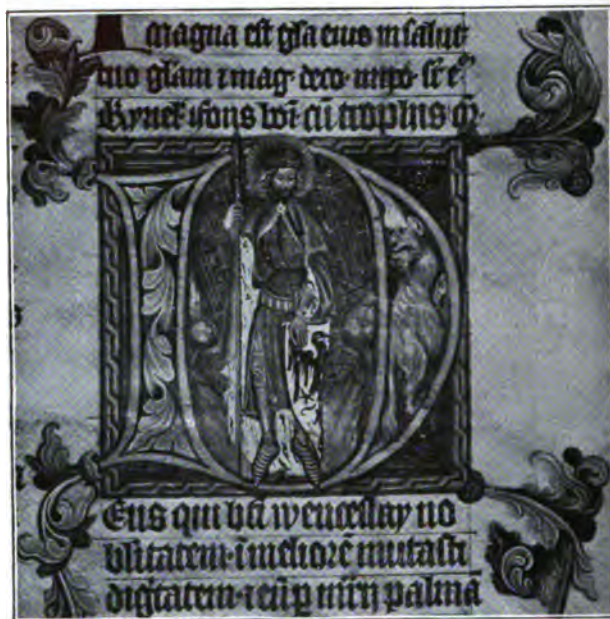 Magna est gl̄a eius in salut
tuo glām ⁊ mag· deco· impo· sr̄ eū
Kyriel· fons boī cū tropḣis
D
Eus qui bt̄i wencesslay no
bilitatem · ī meliorē mutasti
dig̅tatem · ⁊ eū p̱ mr̄ij palmā